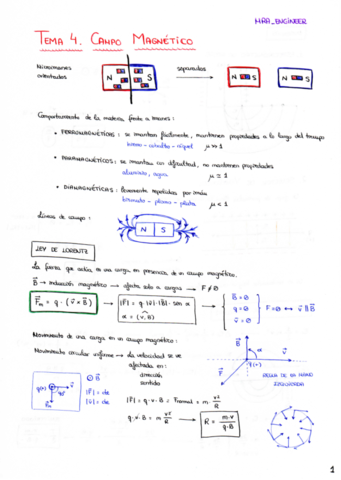 MAR_ENGINEER
TEMA 4. CAMPO MAGNÉTICO
Microimanes orientados
N S
separados
N S N S
Comportamiento de la materia frente a imanes:
• FERROMAGNÉTICOS: se imantan fácilmente, mantienen propiedades a lo largo del tiempo
hierro - cobalto - níquel μ>>1
• PARAMAGNÉTICOS: se imantan con dificultad, no mantienen propiedades
aluminio, agua μ ≃ 1
• DIAMAGNÉTICOS: levemente repelidos por imán
bismuto - plomo - plata μ < 1
Líneas de campo:
N S
LEY DE LORENTZ
La fuerza que actúa en una carga en presencia de un campo magnético.
B → inducción magnética → afecta solo a cargas → F≠0
Fm = q · (v×B) → |F| = q·|v|·|B|·sen α
α = (v,B)
B = 0
q = 0
v = 0
F=0 ↔ v∥B
Movimiento de una carga en un campo magnético:
Movimiento circular uniforme → la velocidad se ve
afectada en:
dirección
sentido
q(+) v
90º
Fm
⊙B
|F| = cte
|v| = cte
|F| = q·v·B = Fnormal = m·v²/R
q·v·B = m v²/R → R = m·v/q·B
B
α
v
F
q(+)
REGLA DE LA MANO
IZQUIERDA
1